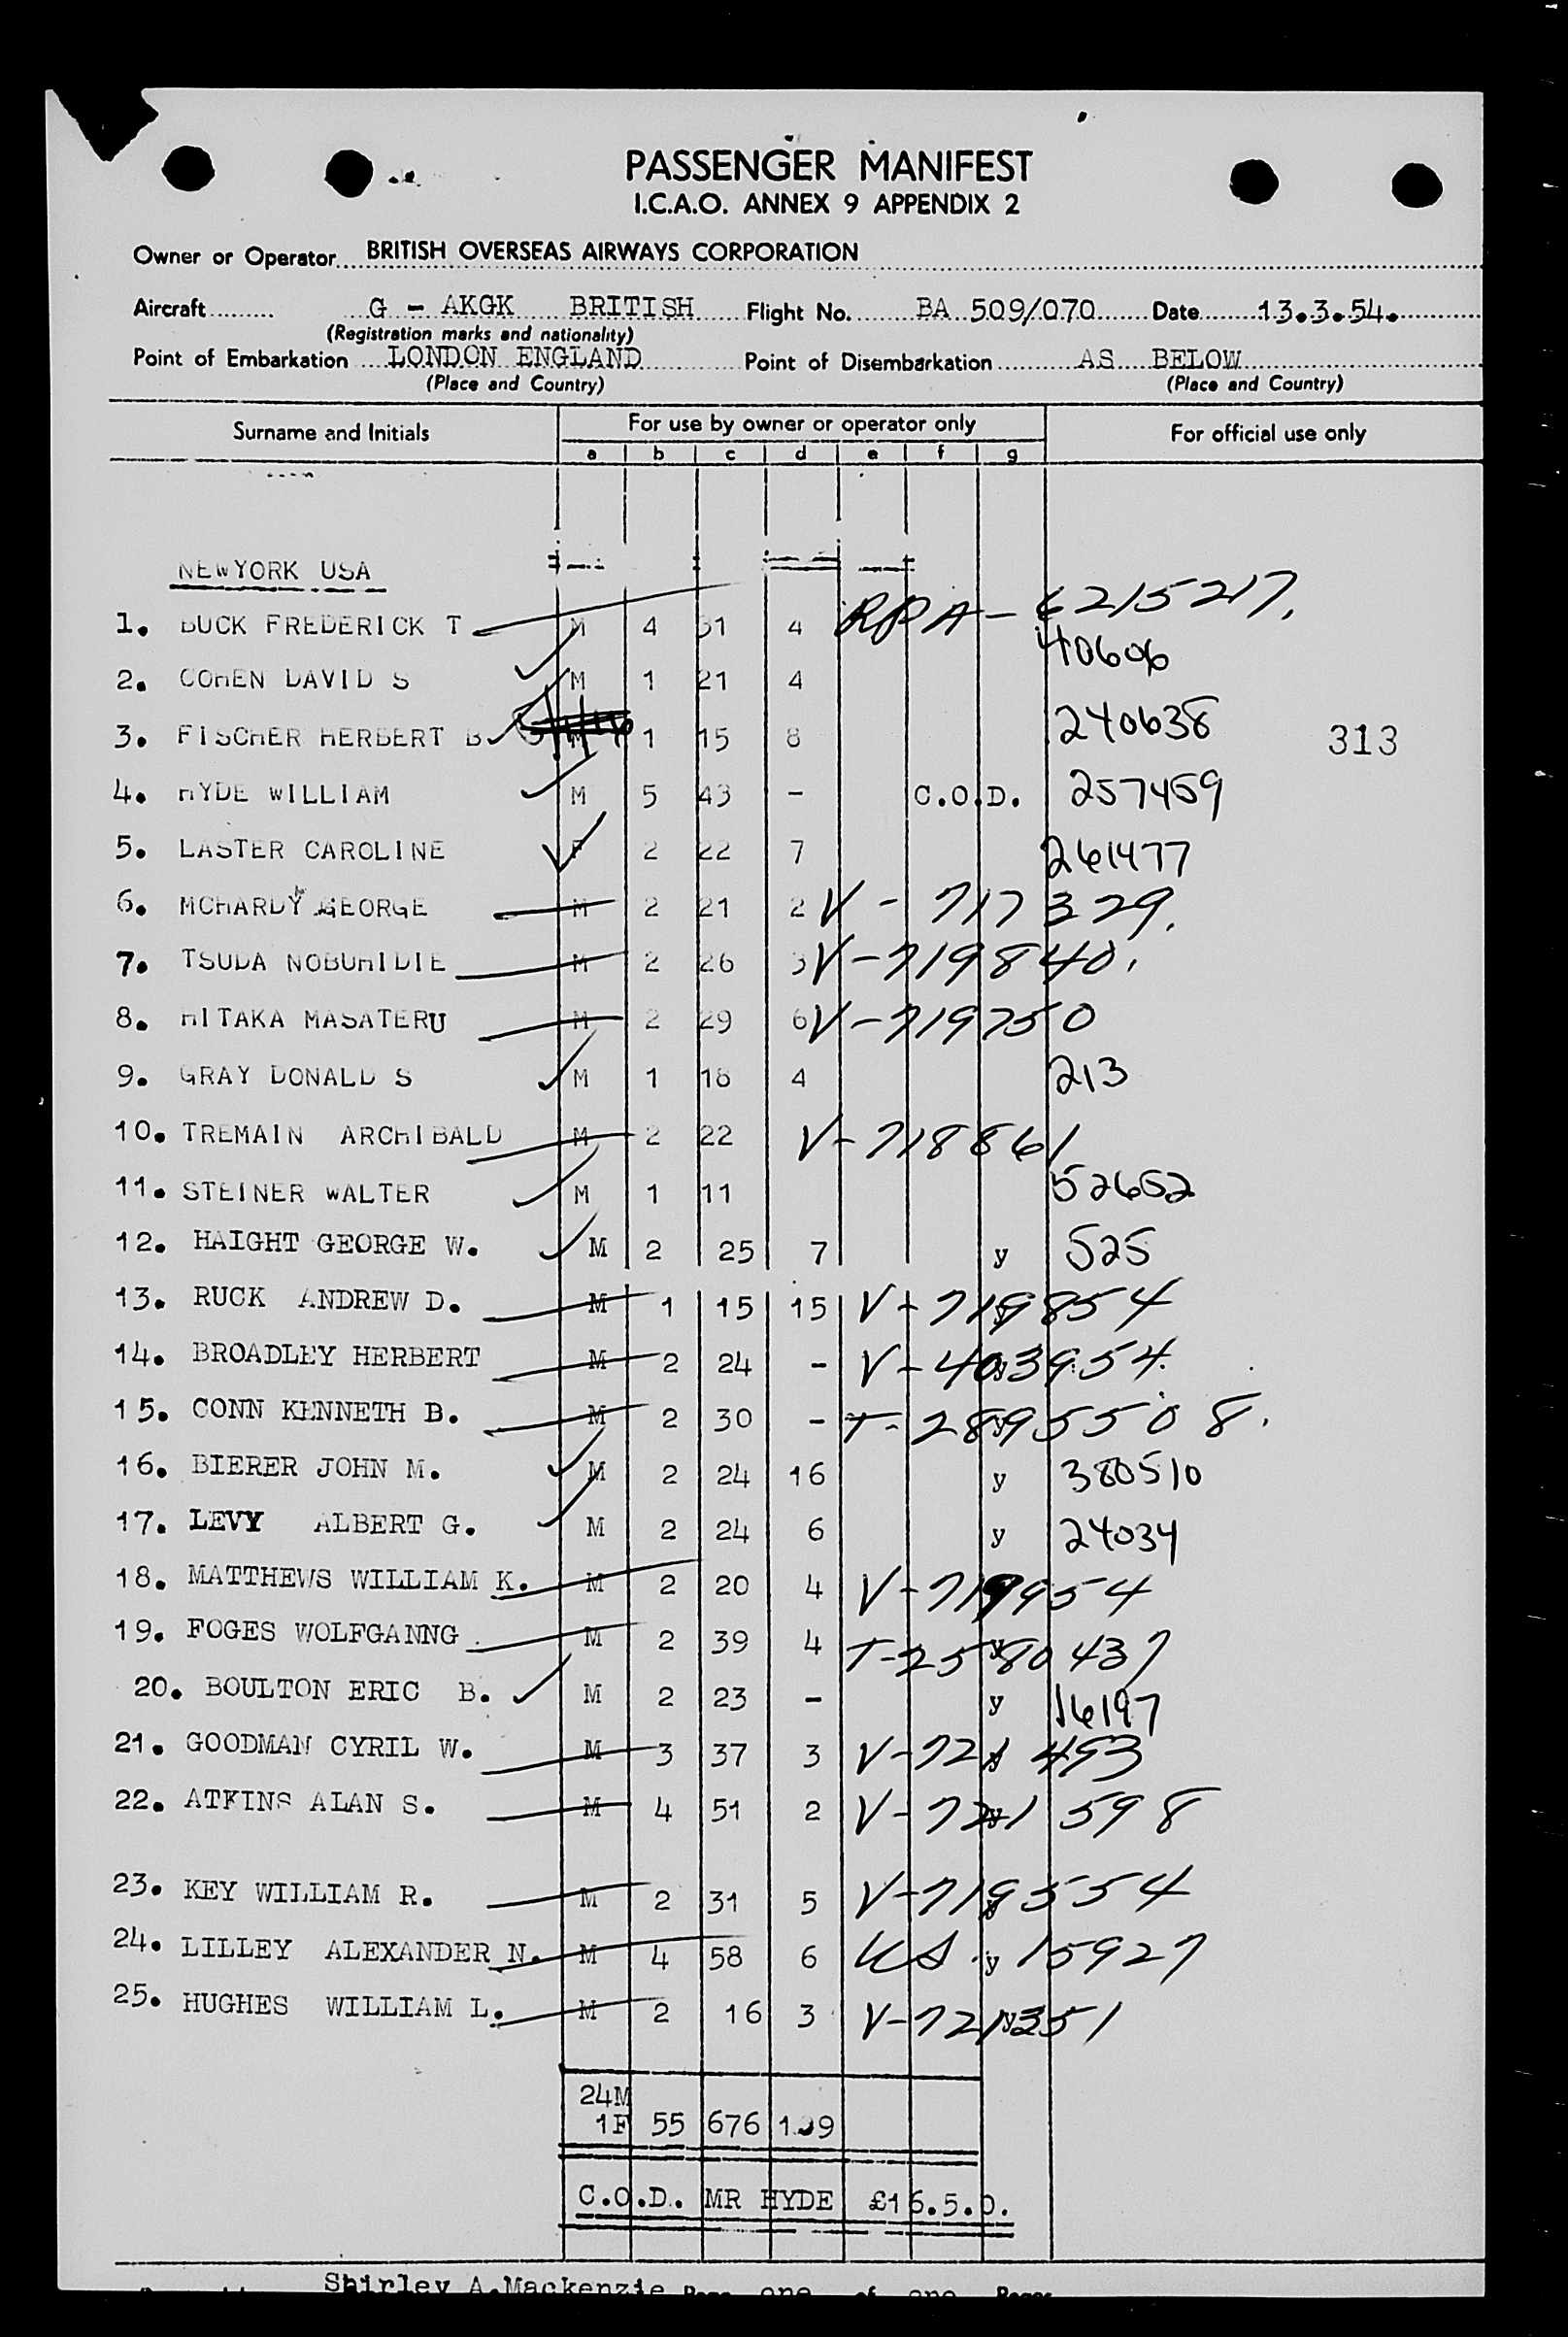 PASSENGER MANIFEST
I.C.A.O. ANNEX 9 APPENDIX 2
Owner or Operator BRITISH OVERSEAS AIRWAYS CORPORATION
Aircraft G - AKGK BRITISH Flight No. BA 509/070 Date 13.3.54.
(Registration marks and nationality)
Point of Embarkation LONDON ENGLAND Point of Disembarkation AS BELOW
(Place and Country) (Place and Country)
Surname and Initials For use by owner or operator only For official use only
a b c d e f g
NEWYORK USA
1. BUCK FREDERICK T M 4 31 4 RPA - 6215217.
2. COHEN DAVID S M 1 21 4 40606
3. FISCHER HERBERT B M 1 15 8 240638 313
4. HYDE WILLIAM M 5 43 - C.O.D. 257459
5. LASTER CAROLINE F 2 22 7 261477
6. MCHARDY GEORGE M 2 21 2 V - 717329.
7. TSUDA NOBUHIDIE M 2 26 3 V - 719840.
8. HITAKA MASATERU M 2 29 6 V - 719750
9. GRAY DONALD S M 1 18 4 213
10. TREMAIN ARCHIBALD M 2 22 V - 718861
11. STEINER WALTER M 1 11 52652
12. HAIGHT GEORGE W. M 2 25 7 y 525
13. RUCK ANDREW D. M 1 15 15 V - 719854
14. BROADLEY HERBERT M 2 24 - V - 403954.
15. CONN KENNETH B. M 2 30 - T - 2895508.
16. BIERER JOHN M. M 2 24 16 y 380510
17. LEVY ALBERT G. M 2 24 6 y 24034
18. MATTHEWS WILLIAM K. M 2 20 4 V - 719954
19. FOGES WOLFGANNG M 2 39 4 T - 2580437
20. BOULTON ERIC B. M 2 23 - y 16197
21. GOODMAN CYRIL W. M 3 37 3 V - 721493
22. ATKINS ALAN S. M 4 51 2 V - 721598
23. KEY WILLIAM R. M 2 31 5 V - 719554
24. LILLEY ALEXANDER N. M 4 58 6 US y 15927
25. HUGHES WILLIAM L. M 2 16 3 V - 721351
24M
1F 55 676 109
C.O.D. MR HYDE £16.5.0.
Shirley A.Mackenzie Page one of one Pages